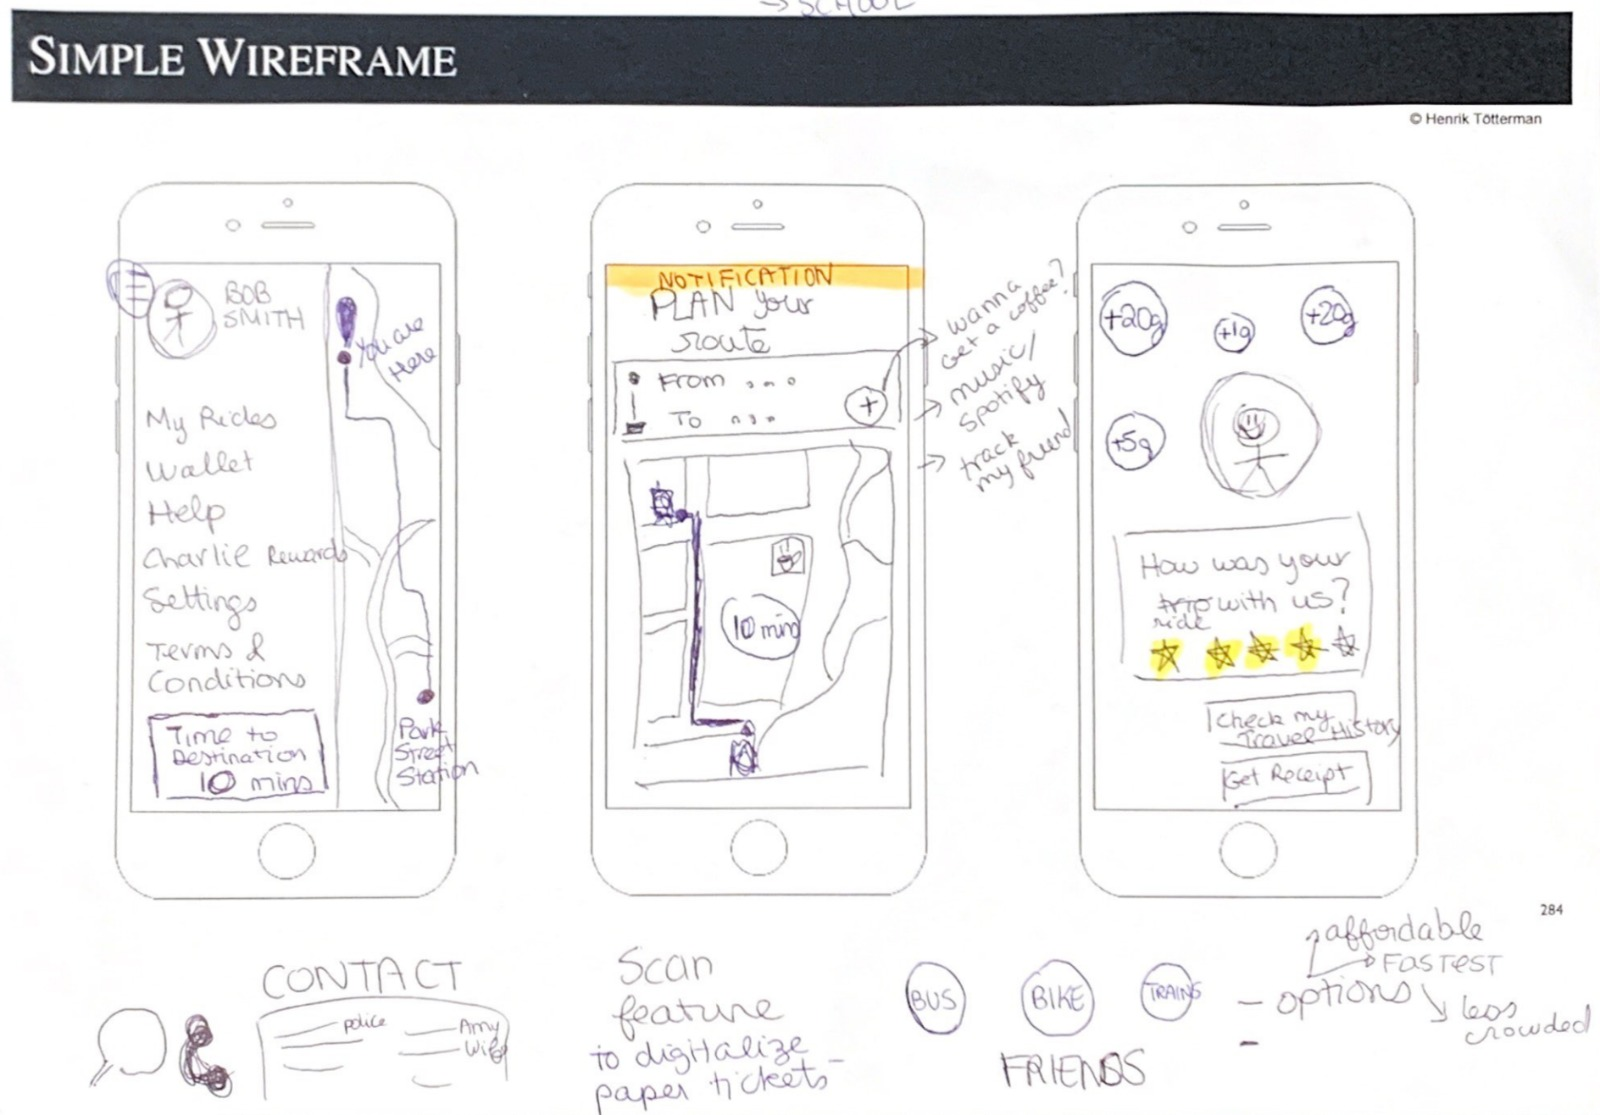 → SCHOOL
SIMPLE WIREFRAME
© Henrik Tötterman
BOB
SMITH
You are
Here
My Rides
Wallet
Help
Charlie Rewards
Settings
Terms &
Conditions
Time to
Destination
10 mins
Park
Street
Station
NOTIFICATION
PLAN Your
route
From ...
To ...
+
→ wanna
get a coffee?
→ music/
Spotify
→ track
my friend
10 mins
+20g
+1g
+20g
+5g
How was your
trip with us?
ride
Check my
Travel History
Get Receipt
284
CONTACT
police
Amy
Wife
Scan
feature
to digitalize
paper tickets
BUS
BIKE
TRAINS
FRIENDS
- options
affordable
FASTEST
less
crowded
-